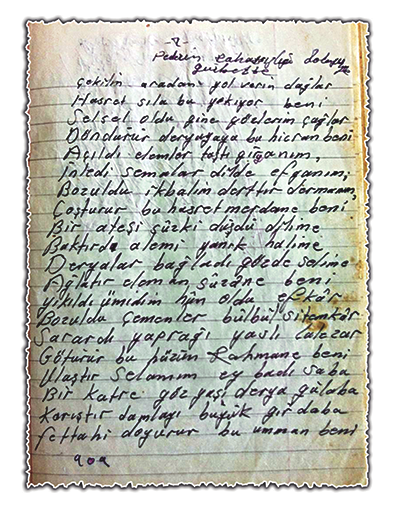 -2-
Pederin rahatsızlığı dolayısı
gurbette
Çekilin aradan yol verin dağlar
Hasret sıla bu yekiyor beni
Selsel oldu yine gözlerim çağlar
Döndürür deryuğaya bu hicran beni
Açıldı elemler taştı giryanım,
İnledi Semalar dilde efganım,
Bozuldu ikbalim derttir dermanım,
Coşturur bu hasret merdane beni
Bir ateşi düşdü dilime
Baktırdı alemi yanık halime
Deryalar bağladı gözde selime
Ağlatır deman sûzâne beni
yıkıldı ümidim hûn oldu efkâr
Bozuldu Çemenler bülbül sitemkâr
Sarardı yaprağı yaslı lalezar
Götürür bu hüzün Rahmane beni
Ulaştır Selamım ey badı Saba
Bir katre göz yaşı derya gülaba
Karıştır damlayı büyük girdaba
fettahi doyurur bu umman beni